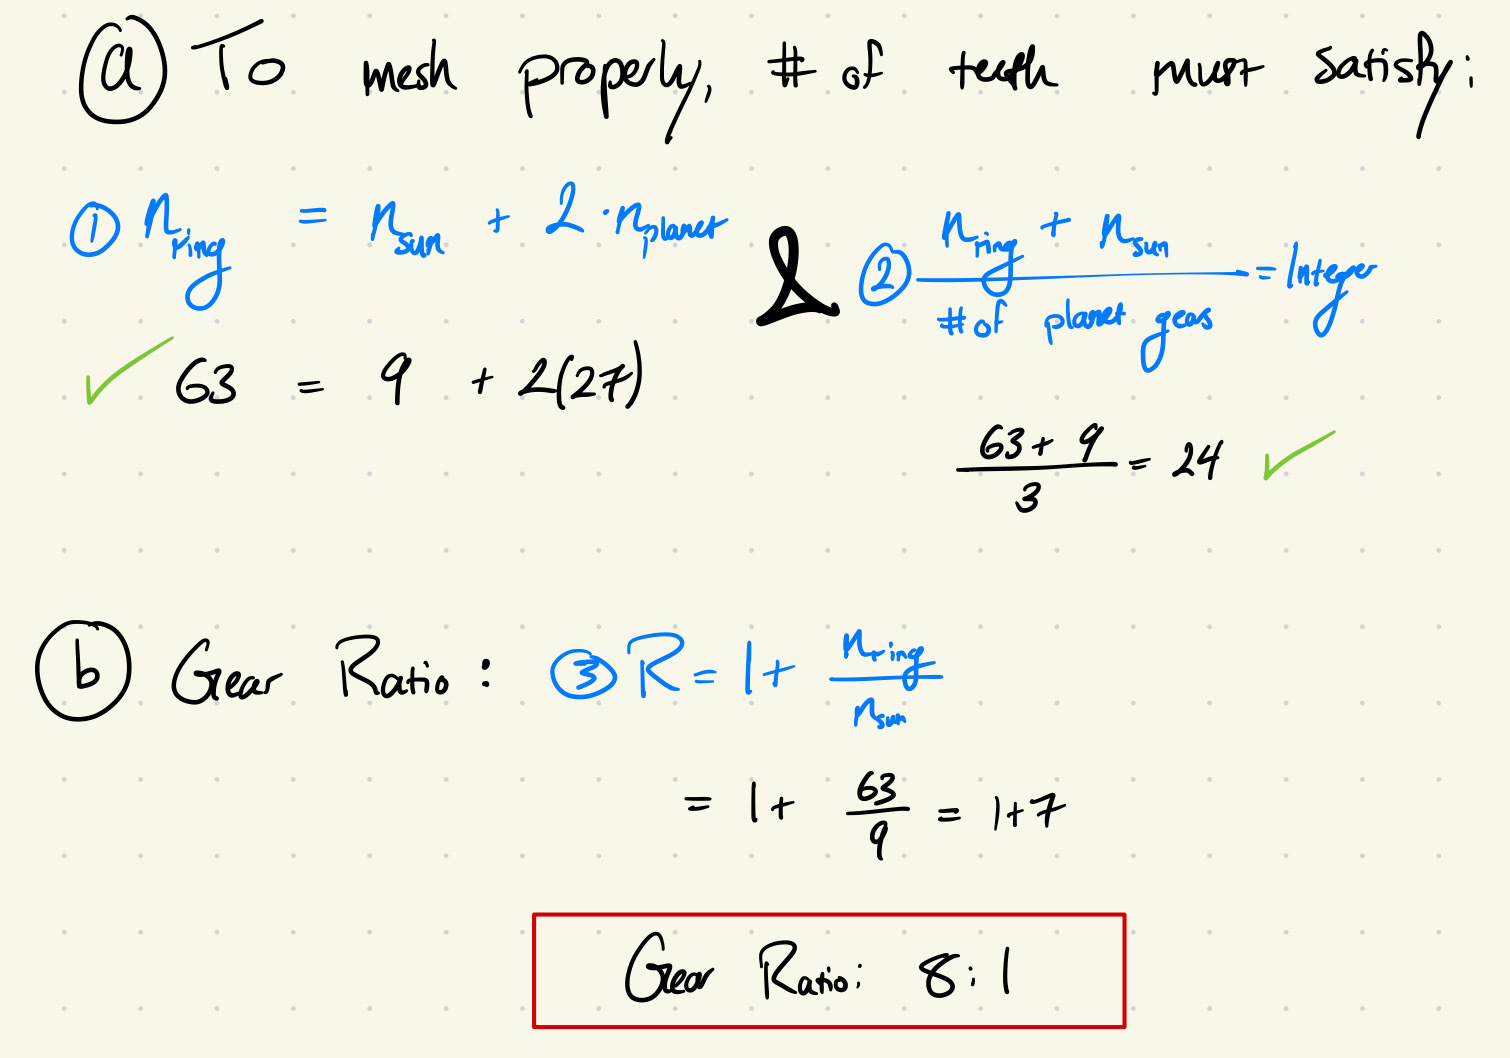 (a) To mesh properly, # of teeth must satisfy:
① n_ring = n_sun + 2 · n_planet & ② (n_ring + n_sun) / (# of planet gears) = Integer
✓ 63 = 9 + 2(27)
(63 + 9) / 3 = 24 ✓
(b) Gear Ratio: ③ R = 1 + n_ring / n_sun
= 1 + 63 / 9 = 1 + 7
Gear Ratio: 8:1